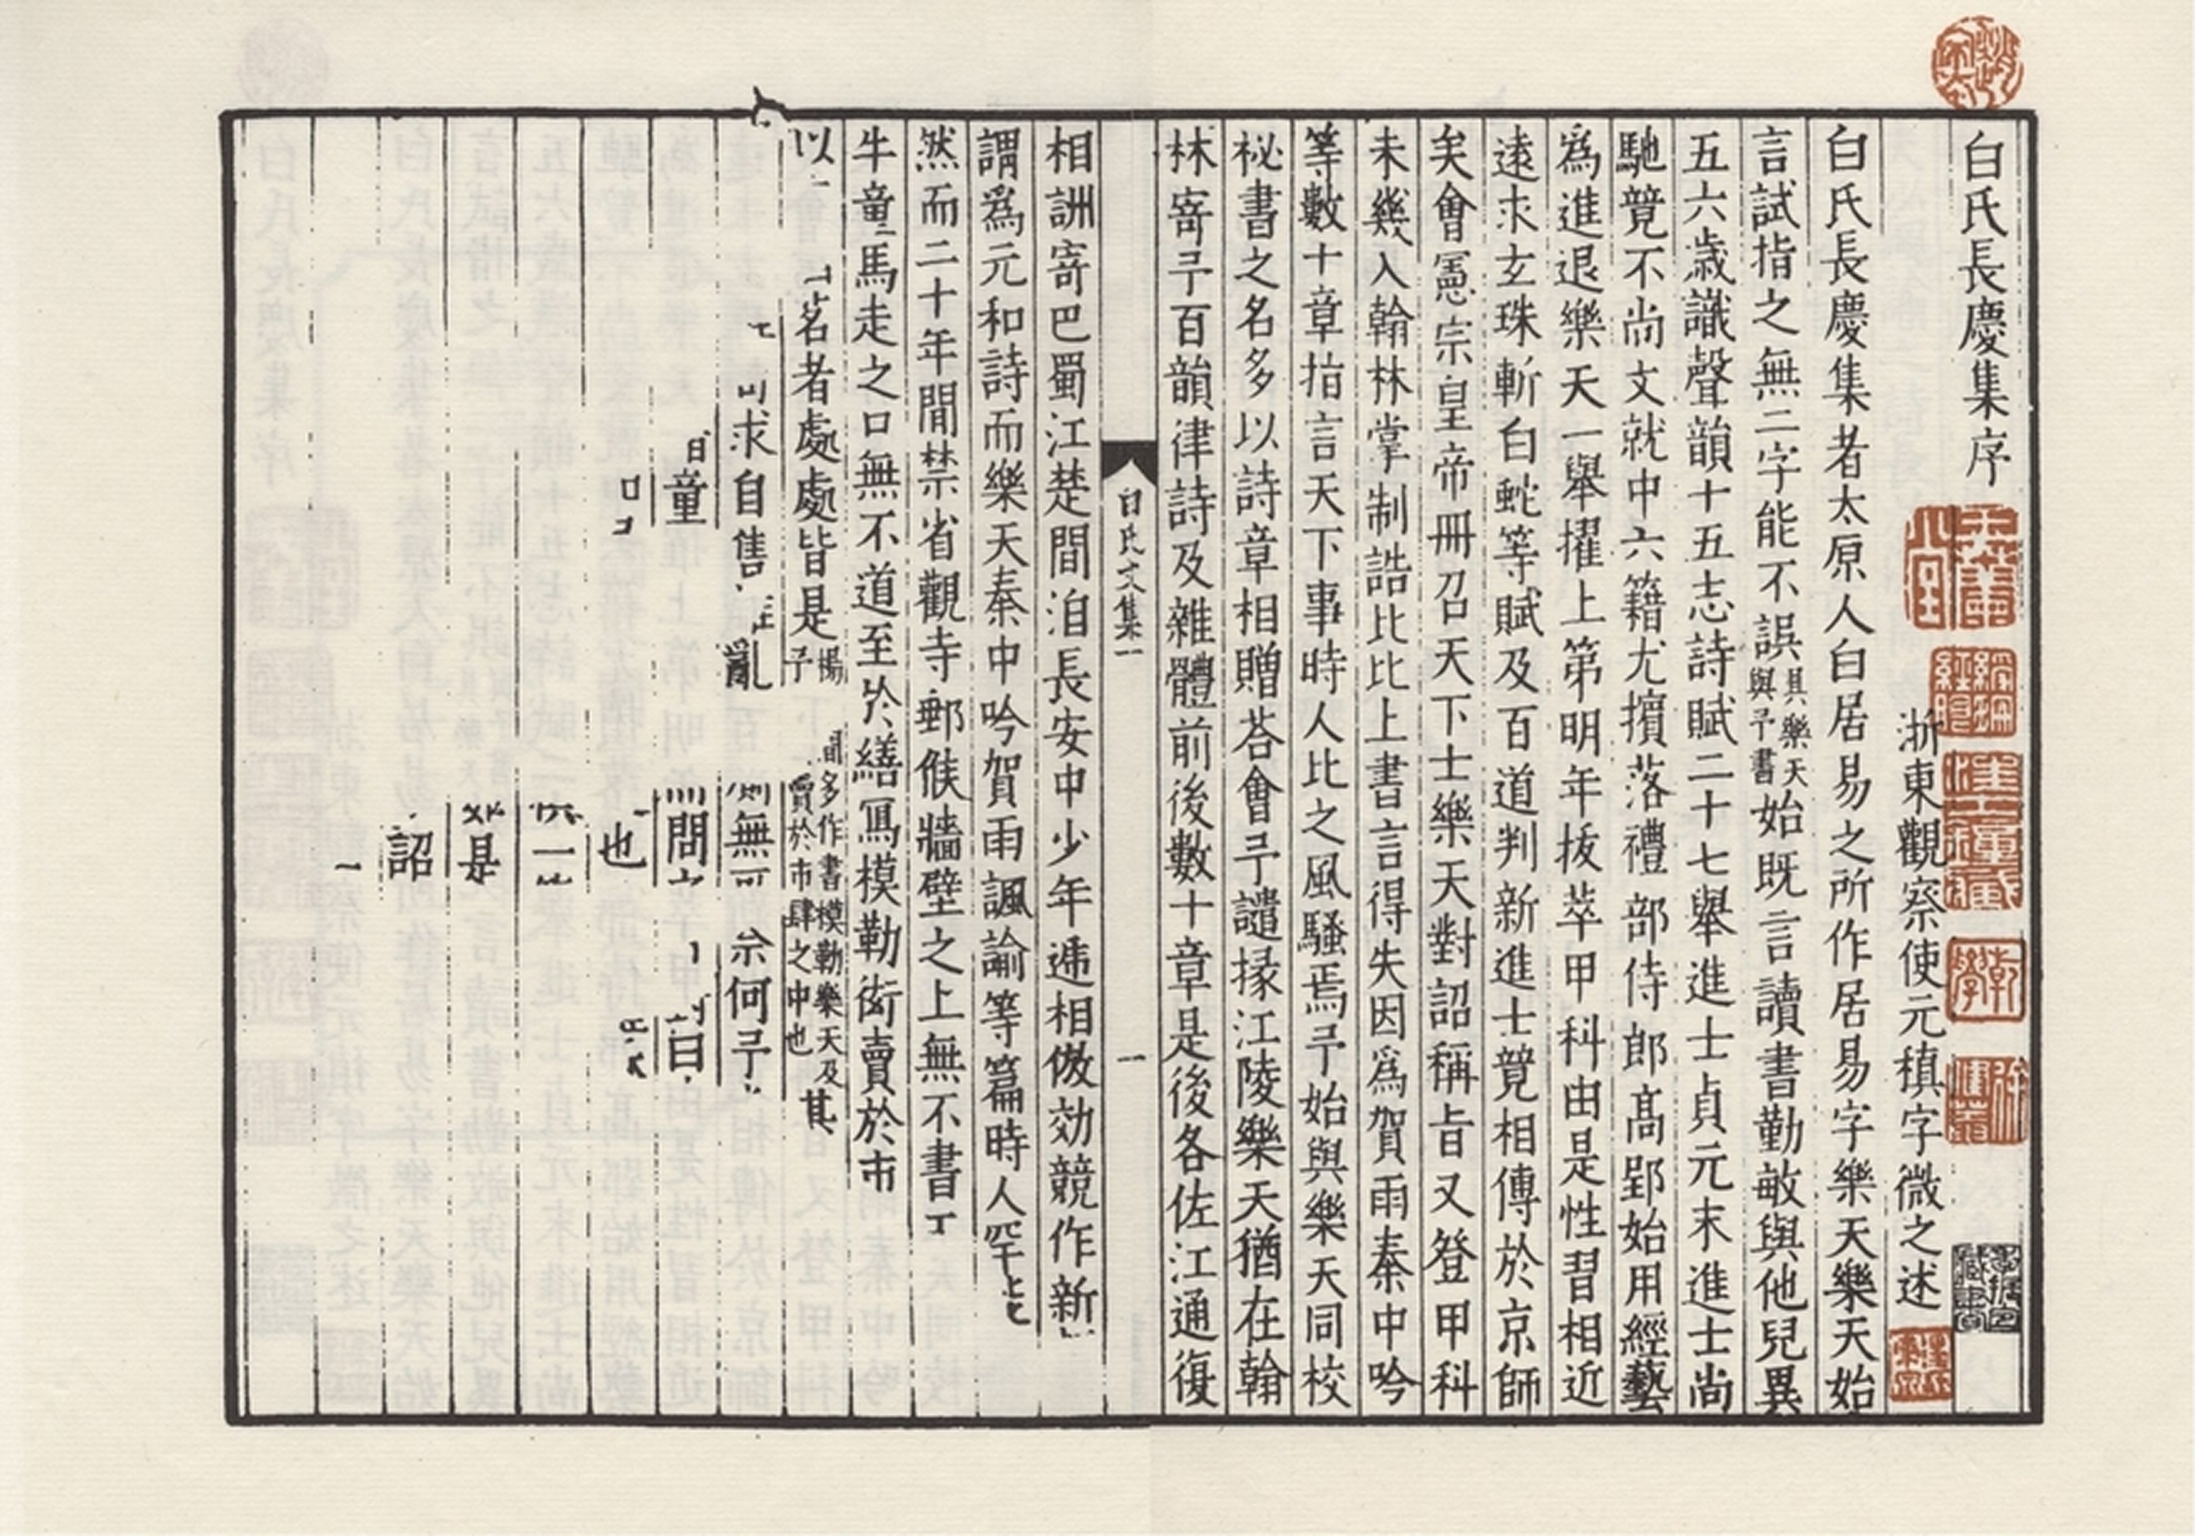 白氏長慶集序
浙東觀察使元稹字微之述
白氏長慶集者太原人白居易之所作居易字樂天樂天始
言試指之無二字能不誤具樂天與予書始既言讀書勤敏與他兒異
五六歲識聲韻十五志詩賦二十七舉進士貞元末進士尚
馳競不尚文就中六籍尤擯落禮部侍郎髙郢始用經藝
爲進退樂天一舉擢上第明年拔萃甲科由是性習相近
遠求玄珠斬白虵等賦及百道判新進士競相傳於京師
矣會憲宗皇帝冊召天下士樂天對詔稱旨又登甲科
未幾入翰林掌制誥比比上書言得失因爲賀雨秦中吟
等數十章指言天下事時人比之風騷焉予始與樂天同校
祕書之名多以詩章相贈荅會予譴掾江陵樂天猶在翰
林寄予百韻律詩及雜體前後數十章是後各佐江通復
白氏文集一
一
相詶寄巴蜀江楚間洎長安中少年遞相倣効競作新
謂爲元和詩而樂天秦中吟賀雨諷諭等篇時人罕
然而二十年間禁省觀寺郵候牆壁之上無不書
牛童馬走之口無不道至於繕寫模勒衒賣於市
以茗者處處皆是楊子間多作書模勒樂天及賣於市肆之中也其
求自售亂無何予
童問白
也
一
是
詔